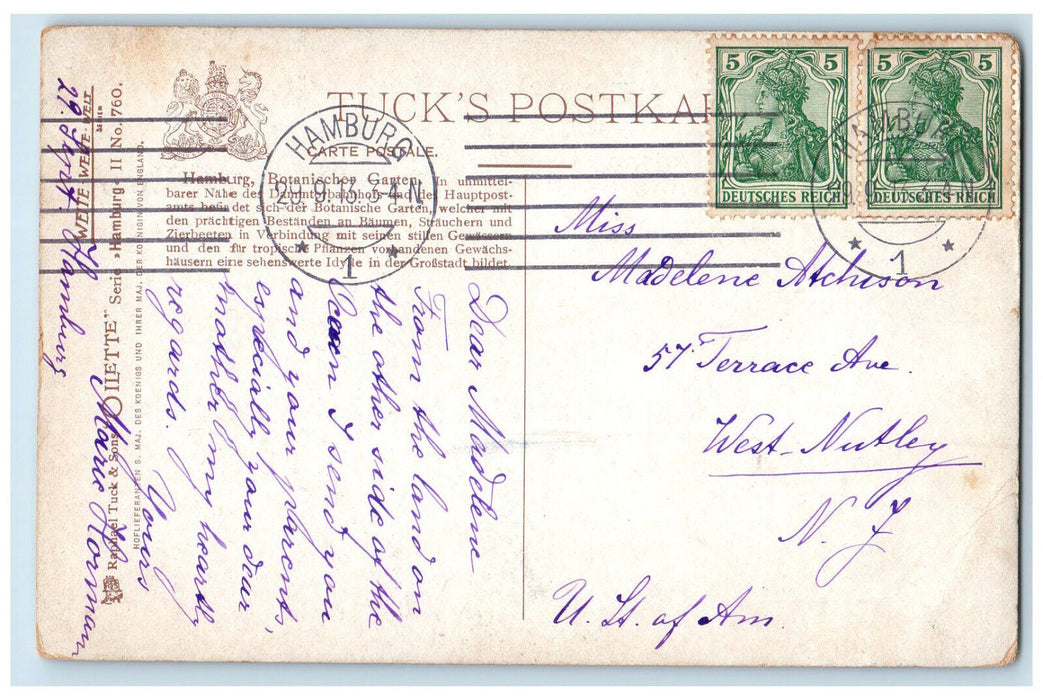 TUCK'S POSTKAR
CARTE POSTALE.
Hamburg, Botanischer Garten. In unmittel-
barer Nähe des Dammtorbahnhofs und des Hauptpost-
amts befindet sich der Botanische Garten, welcher mit
den prächtigen Beständen an Bäumen, Sträuchern und
Zierbeeten in Verbindung mit seinen stillen Gewässern
und den für tropische Pflanzen vorhandenen Gewächs-
häusern eine sehenswerte Idylle in der Großstadt bildet.
HAMBURG
9.13.3-4 N
* 1 *
5 5
DEUTSCHES REICH
5 5
DEUTSCHES REICH
HAMBURG
* 1 *
Miss
Madelene Atchison
57 Terrace Ave.
West-Nutley
N. J
U. St. of Am.
Dear Madelene
From the land on
the other side of the
I send you
and your parents,
especially your dear
mother my heartly
regards.
Yours
Marie Hormann
Hamburg
29. Sept.
Raphael Tuck & Sons' "OILETTE" Serie »Hamburg« II No. 760.
HOFLIEFERANTEN S. MAJ. DES KOENIGS UND IHRER MAJ. DER KÖNIGIN VON ENGLAND.